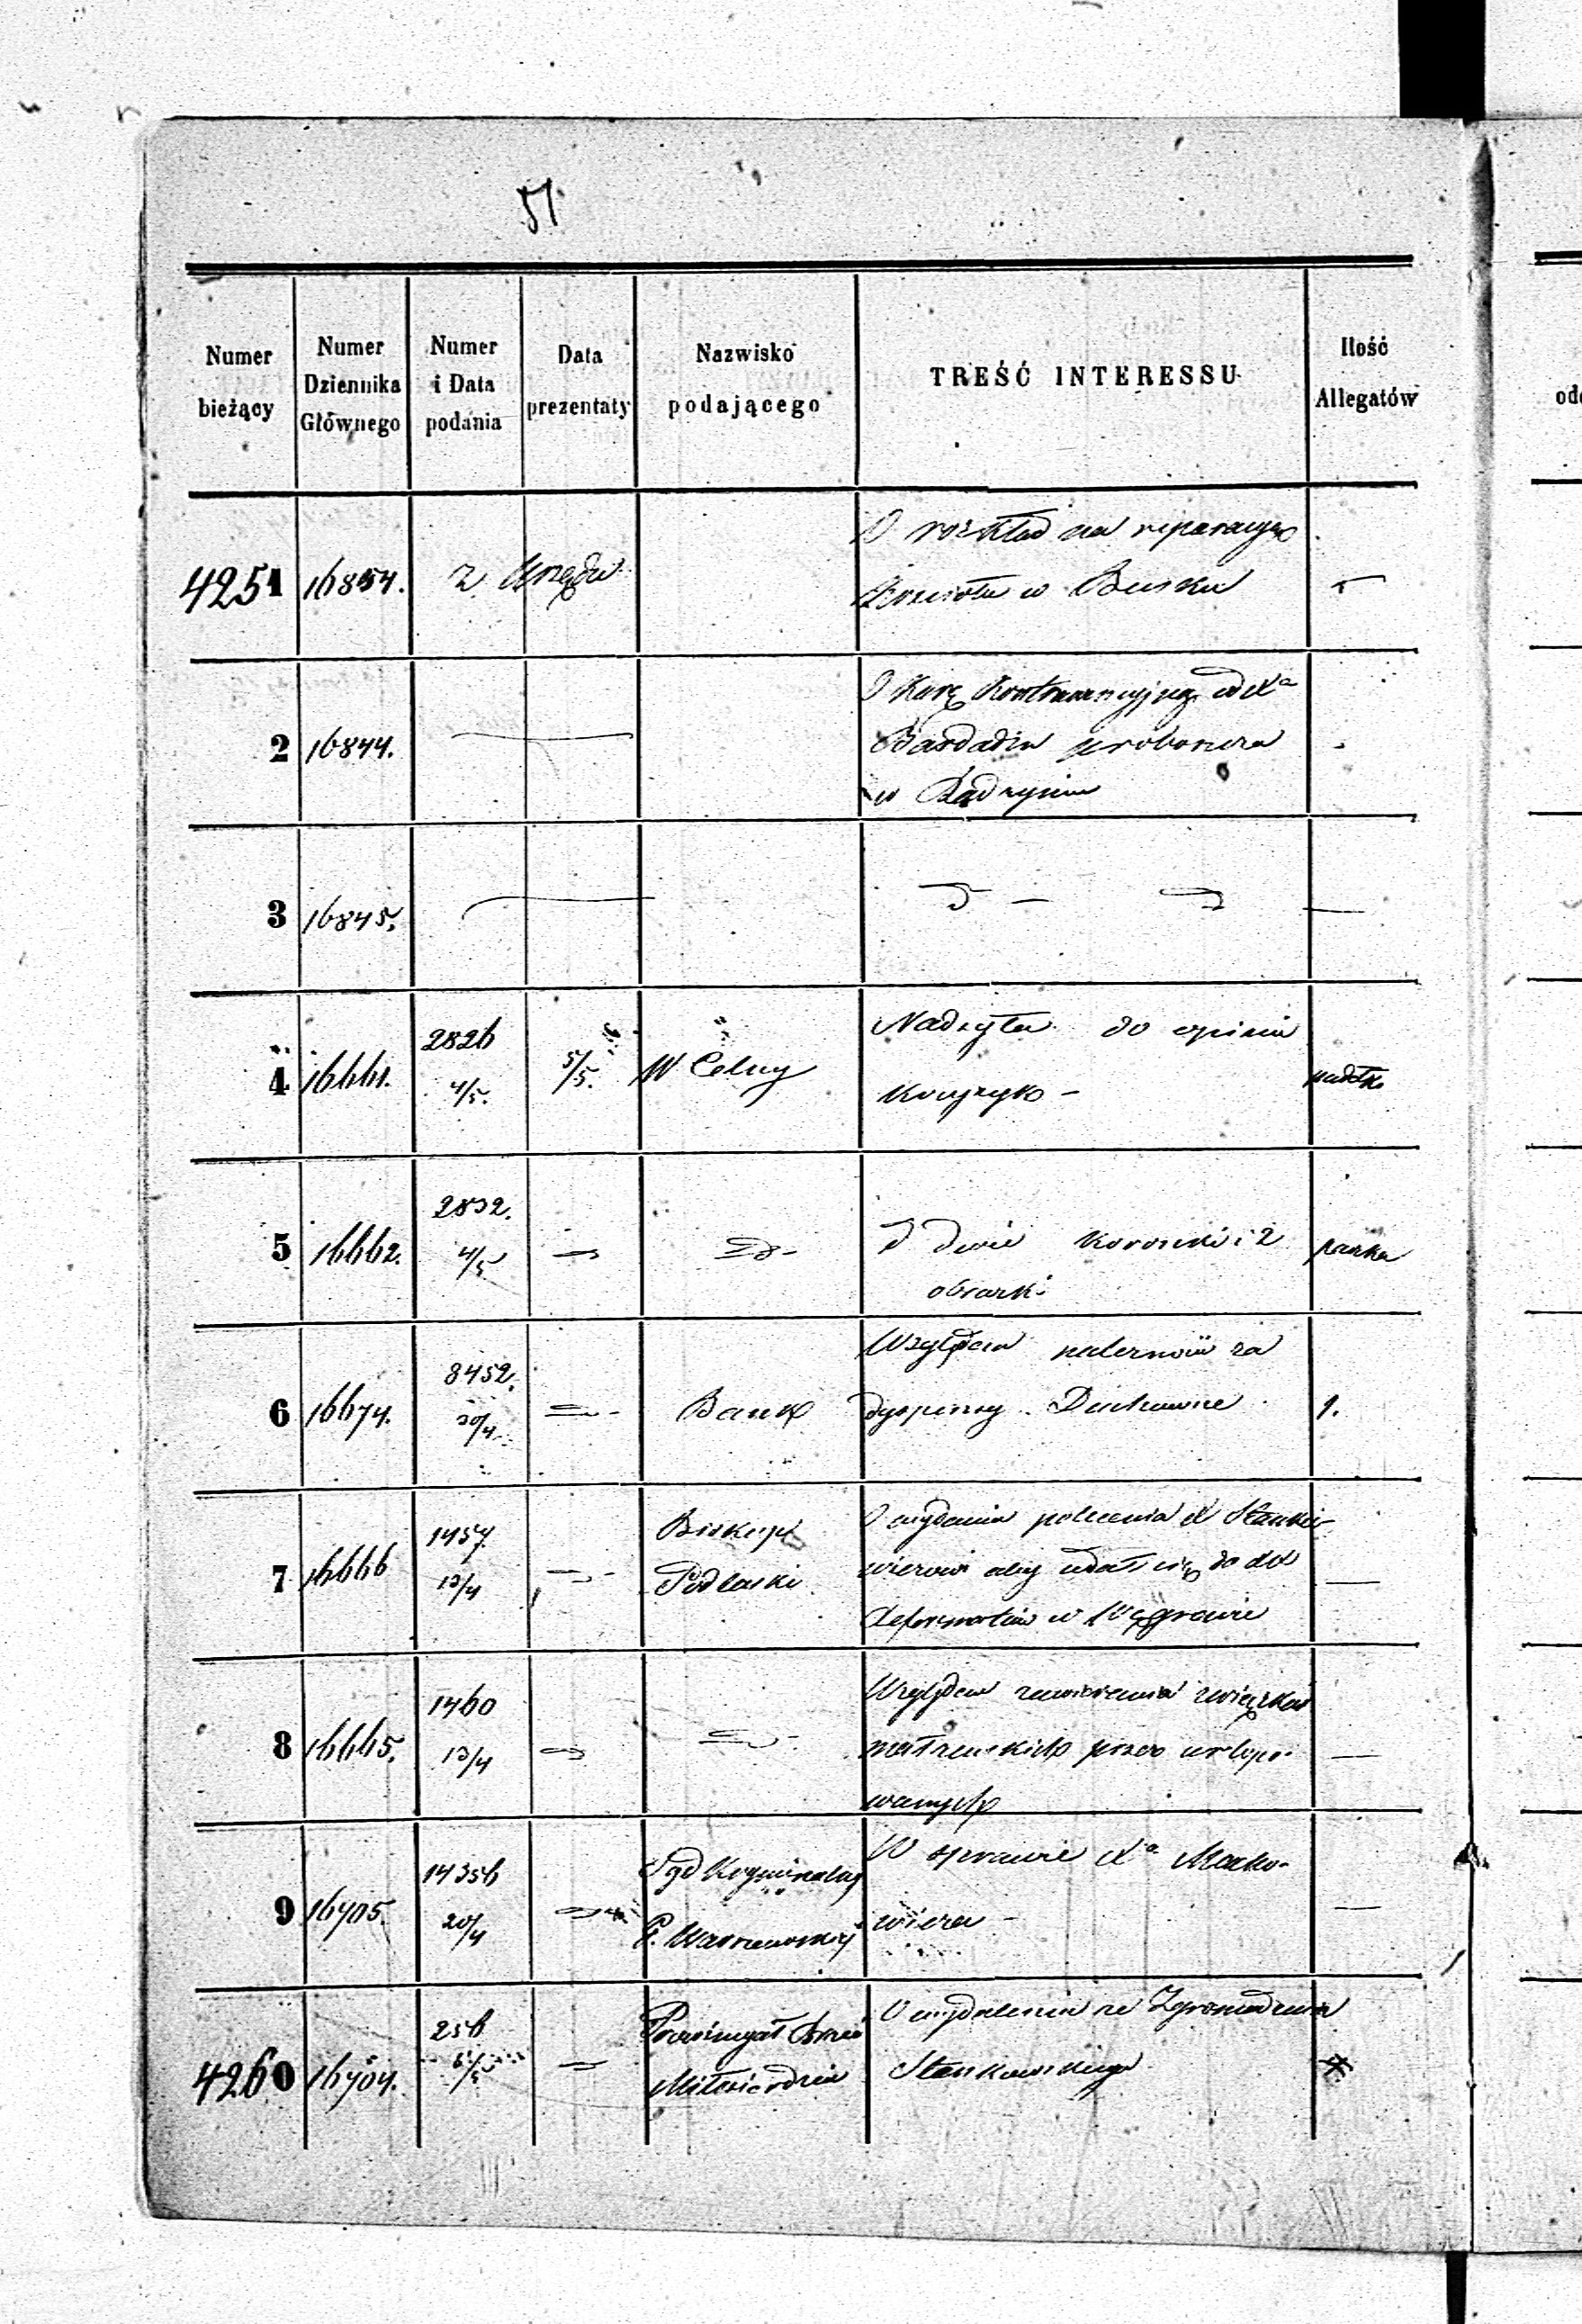 51.
Numer bieżący
Numer Dziennika Głównego
Numer i Data podania
Data prezentaty
Nazwisko podającego
TREŚĆ INTERESSU
Ilość Allegatów
4251 16854. z Urzędu
O rozkład na reparacyę
Kościoła w Busku
2 16844.
O Karę Kontrawencyjną od Xa
proboszcza
w
3 16845.
4 16661. 2826 4/5. 5/5. W Celny
Nadsyła do opinii
książek -
5 16662. 2832. 4/5
d dwie koronki i 2 paczka
obrazki
6 16674. 8452. 30/4 Bank
Względem należności za
dyspensy Duchowne 1.
7 16666 1457. 13/4 Biskup Podlaski
O wydanie polecenia X Stankie-
wiczowi aby udał się do XX
Reformatów w Węgrowie
8 16665. 1460 13/4
Względem zawierania związków
małżeńskich przez urlopo-
wanych
9 16705. 14356 20/4 Sąd Kryminalny
G. Warszawskiej
W sprawie Xa Macko-
wicza -
4260 16704. 256 6/5 Prowincyał Braci
Miłosierdzia
O wydalenie ze Zgromadzenia
Stankowskiego